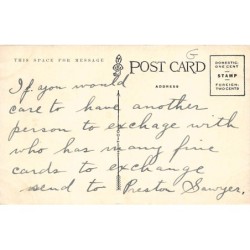 THIS SPACE FOR MESSAGE
POST CARD
ADDRESS
DOMESTIC,
ONE CENT
STAMP
FOREIGN,
TWO CENTS
G
If you would
care to have another
person to exchage with
who has many fine
cards to exchange
send to Preston Sawyer,